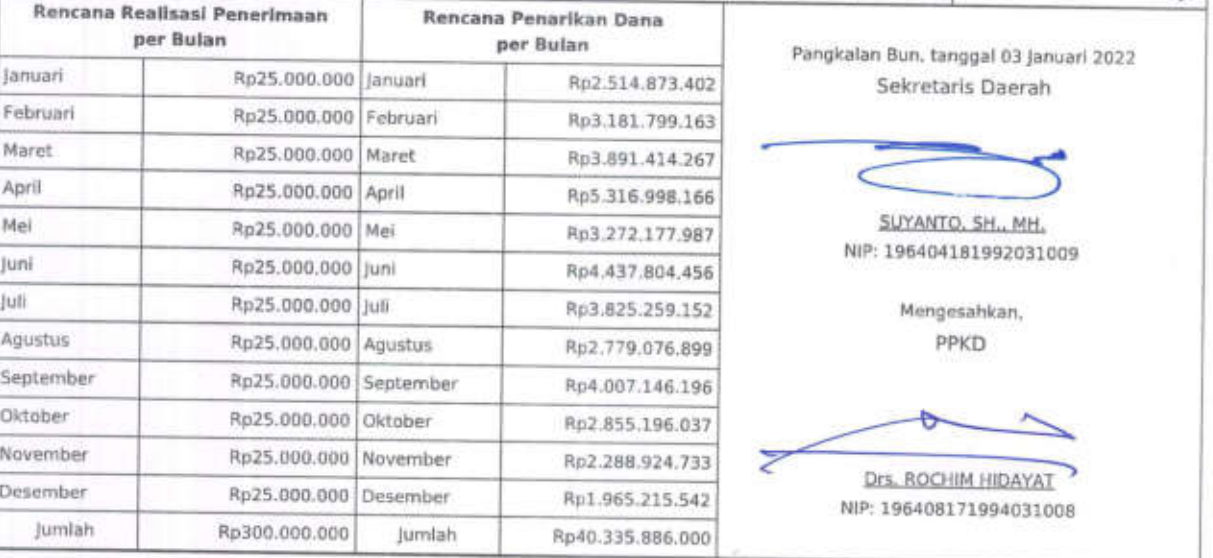 Rencana Realisasi Penerimaan
per Bulan
Rencana Penarikan Dana
per Bulan
Januari Rp25.000.000 Januari Rp2.514.873.402
Februari Rp25.000.000 Februari Rp3.181.799.163
Maret Rp25.000.000 Maret Rp3.891.414.267
April Rp25.000.000 April Rp5.316.998.166
Mei Rp25.000.000 Mei Rp3.272.177.987
Juni Rp25.000.000 Juni Rp4.437.804.456
Juli Rp25.000.000 Juli Rp3.825.259.152
Agustus Rp25.000.000 Agustus Rp2.779.076.899
September Rp25.000.000 September Rp4.007.146.196
Oktober Rp25.000.000 Oktober Rp2.855.196.037
November Rp25.000.000 November Rp2.288.924.733
Desember Rp25.000.000 Desember Rp1.965.215.542
Jumlah Rp300.000.000 Jumlah Rp40.335.886.000
Pangkalan Bun, tanggal 03 Januari 2022
Sekretaris Daerah
SUYANTO, SH., MH.
NIP: 196404181992031009
Mengesahkan,
PPKD
Drs. ROCHIM HIDAYAT
NIP: 196408171994031008